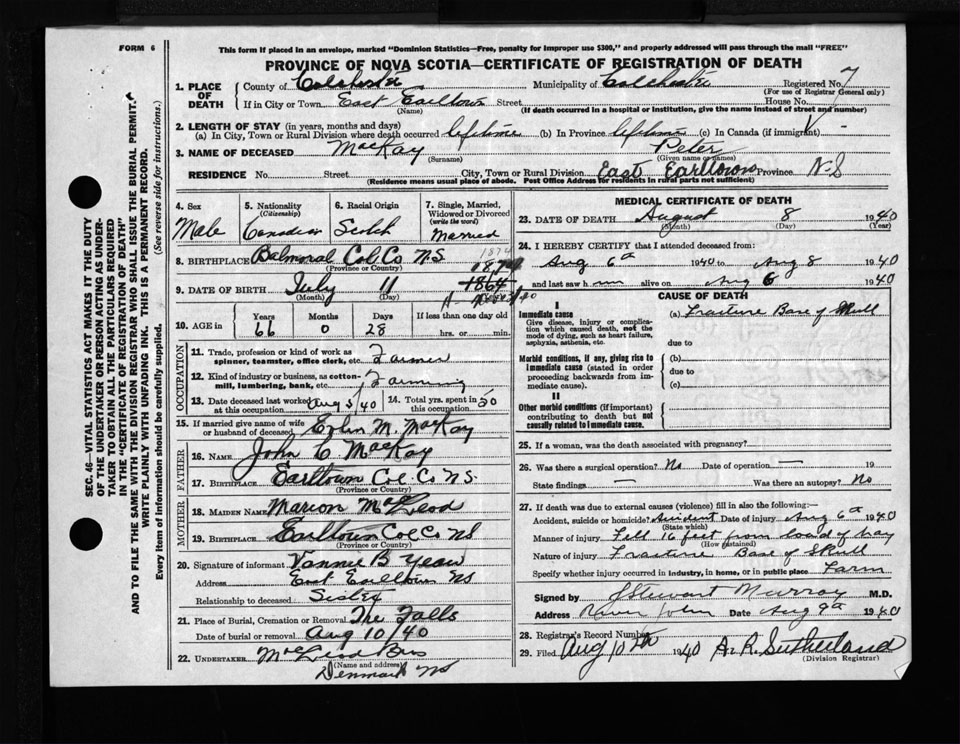 FORM 6
This form if placed in an envelope, marked "Dominion Statistics—Free, penalty for improper use $300," and properly addressed will pass through the mail "FREE"
PROVINCE OF NOVA SCOTIA—CERTIFICATE OF REGISTRATION OF DEATH
SEC. 46—VITAL STATISTICS ACT MAKES IT THE DUTY
OF THE UNDERTAKER OR PERSON ACTING AS UNDER-
TAKER TO OBTAIN ALL THE PARTICULARS REQUIRED
IN THE "CERTIFICATE OF REGISTRATION OF DEATH"
AND TO FILE THE SAME WITH THE DIVISION REGISTRAR WHO SHALL ISSUE THE BURIAL PERMIT.
WRITE PLAINLY WITH UNFADING INK. THIS IS A PERMANENT RECORD.
Every item of information should be carefully supplied. (See reverse side for instructions.)
1. PLACE OF DEATH { County of Colchester Municipality of Colchester Registered No. 7
(For use of Registrar General only)
If in City or Town East Earltown Street House No.
(Name) (If death occurred in a hospital or institution, give the name instead of street and number)
2. LENGTH OF STAY (in years, months and days)
(a) In City, Town or Rural Division where death occurred lifetime (b) In Province lifetime (c) In Canada (if immigrant) -
3. NAME OF DECEASED MacKay Peter
(Surname) (Given name or names)
RESIDENCE No. Street City, Town or Rural Division East Earltown Province N.S
(Residence means usual place of abode. Post Office Address for residents in rural parts not sufficient)
4. Sex 5. Nationality (Citizenship) 6. Racial Origin 7. Single, Married, Widowed or Divorced (write the word)
Male Canadian Scotch Married
8. BIRTHPLACE Balmoral Col. Co N.S
(Province or Country)
1874
1874
9. DATE OF BIRTH July 11 1864
(Month) (Day)
10. AGE in Years Months Days If less than one day old
66 0 28 hrs. or min.
OCCUPATION
11. Trade, profession or kind of work as spinner, teamster, office clerk, etc. Farmer
12. Kind of industry or business, as cotton-mill, lumbering, bank, etc. Farming
13. Date deceased last worked at this occupation Aug 5/40 14. Total yrs. spent in this occupation 50
15. If married give name of wife or husband of deceased M. MacKay
FATHER
16. NAME John C MacKay
17. BIRTHPLACE Earltown Col. Co N.S.
(Province or Country)
MOTHER
18. MAIDEN NAME Marion McLeod
19. BIRTHPLACE Earltown Col Co NS
(Province or Country)
20. Signature of informant B
Address East Earltown NS
Relationship to deceased Sister
21. Place of Burial, Cremation or Removal The Falls
Date of burial or removal Aug 10/40
22. UNDERTAKER MacLeod Bros
(Name and address)
Denmark NS
MEDICAL CERTIFICATE OF DEATH
23. DATE OF DEATH August 8 1940
(Month) (Day) (Year)
24. I HEREBY CERTIFY that I attended deceased from:
Aug 6th 1940 to Aug 8 1940
and last saw him alive on Aug 6 1940
CAUSE OF DEATH
I
Immediate cause (a) Fracture Base of Skull
Give disease, injury or complication which caused death, not the mode of dying, such as heart failure, asphyxia, asthenia, etc.
due to
Morbid conditions, if any, giving rise to immediate cause (stated in order proceeding backwards from immediate cause).
(b)
due to
(c)
II
Other morbid conditions (if important) contributing to death but not causally related to immediate cause.
25. If a woman, was the death associated with pregnancy?
26. Was there a surgical operation? No Date of operation — 19
State findings — Was there an autopsy? No
27. If death was due to external causes (violence) fill in also the following:
Accident, suicide or homicide? Accident Date of injury Aug 6th 1940
(State which)
Manner of injury Fell 16 feet from load of hay
(How sustained)
Nature of injury Fracture Base of Skull
Specify whether injury occurred in industry, in home, or in public place Farm
Signed by J Stewart Murray M.D.
Address River John Date Aug 9th 1940
28. Registrar's Record Number
29. Filed Aug 10th 1940 A. R. Sutherland
(Division Registrar)